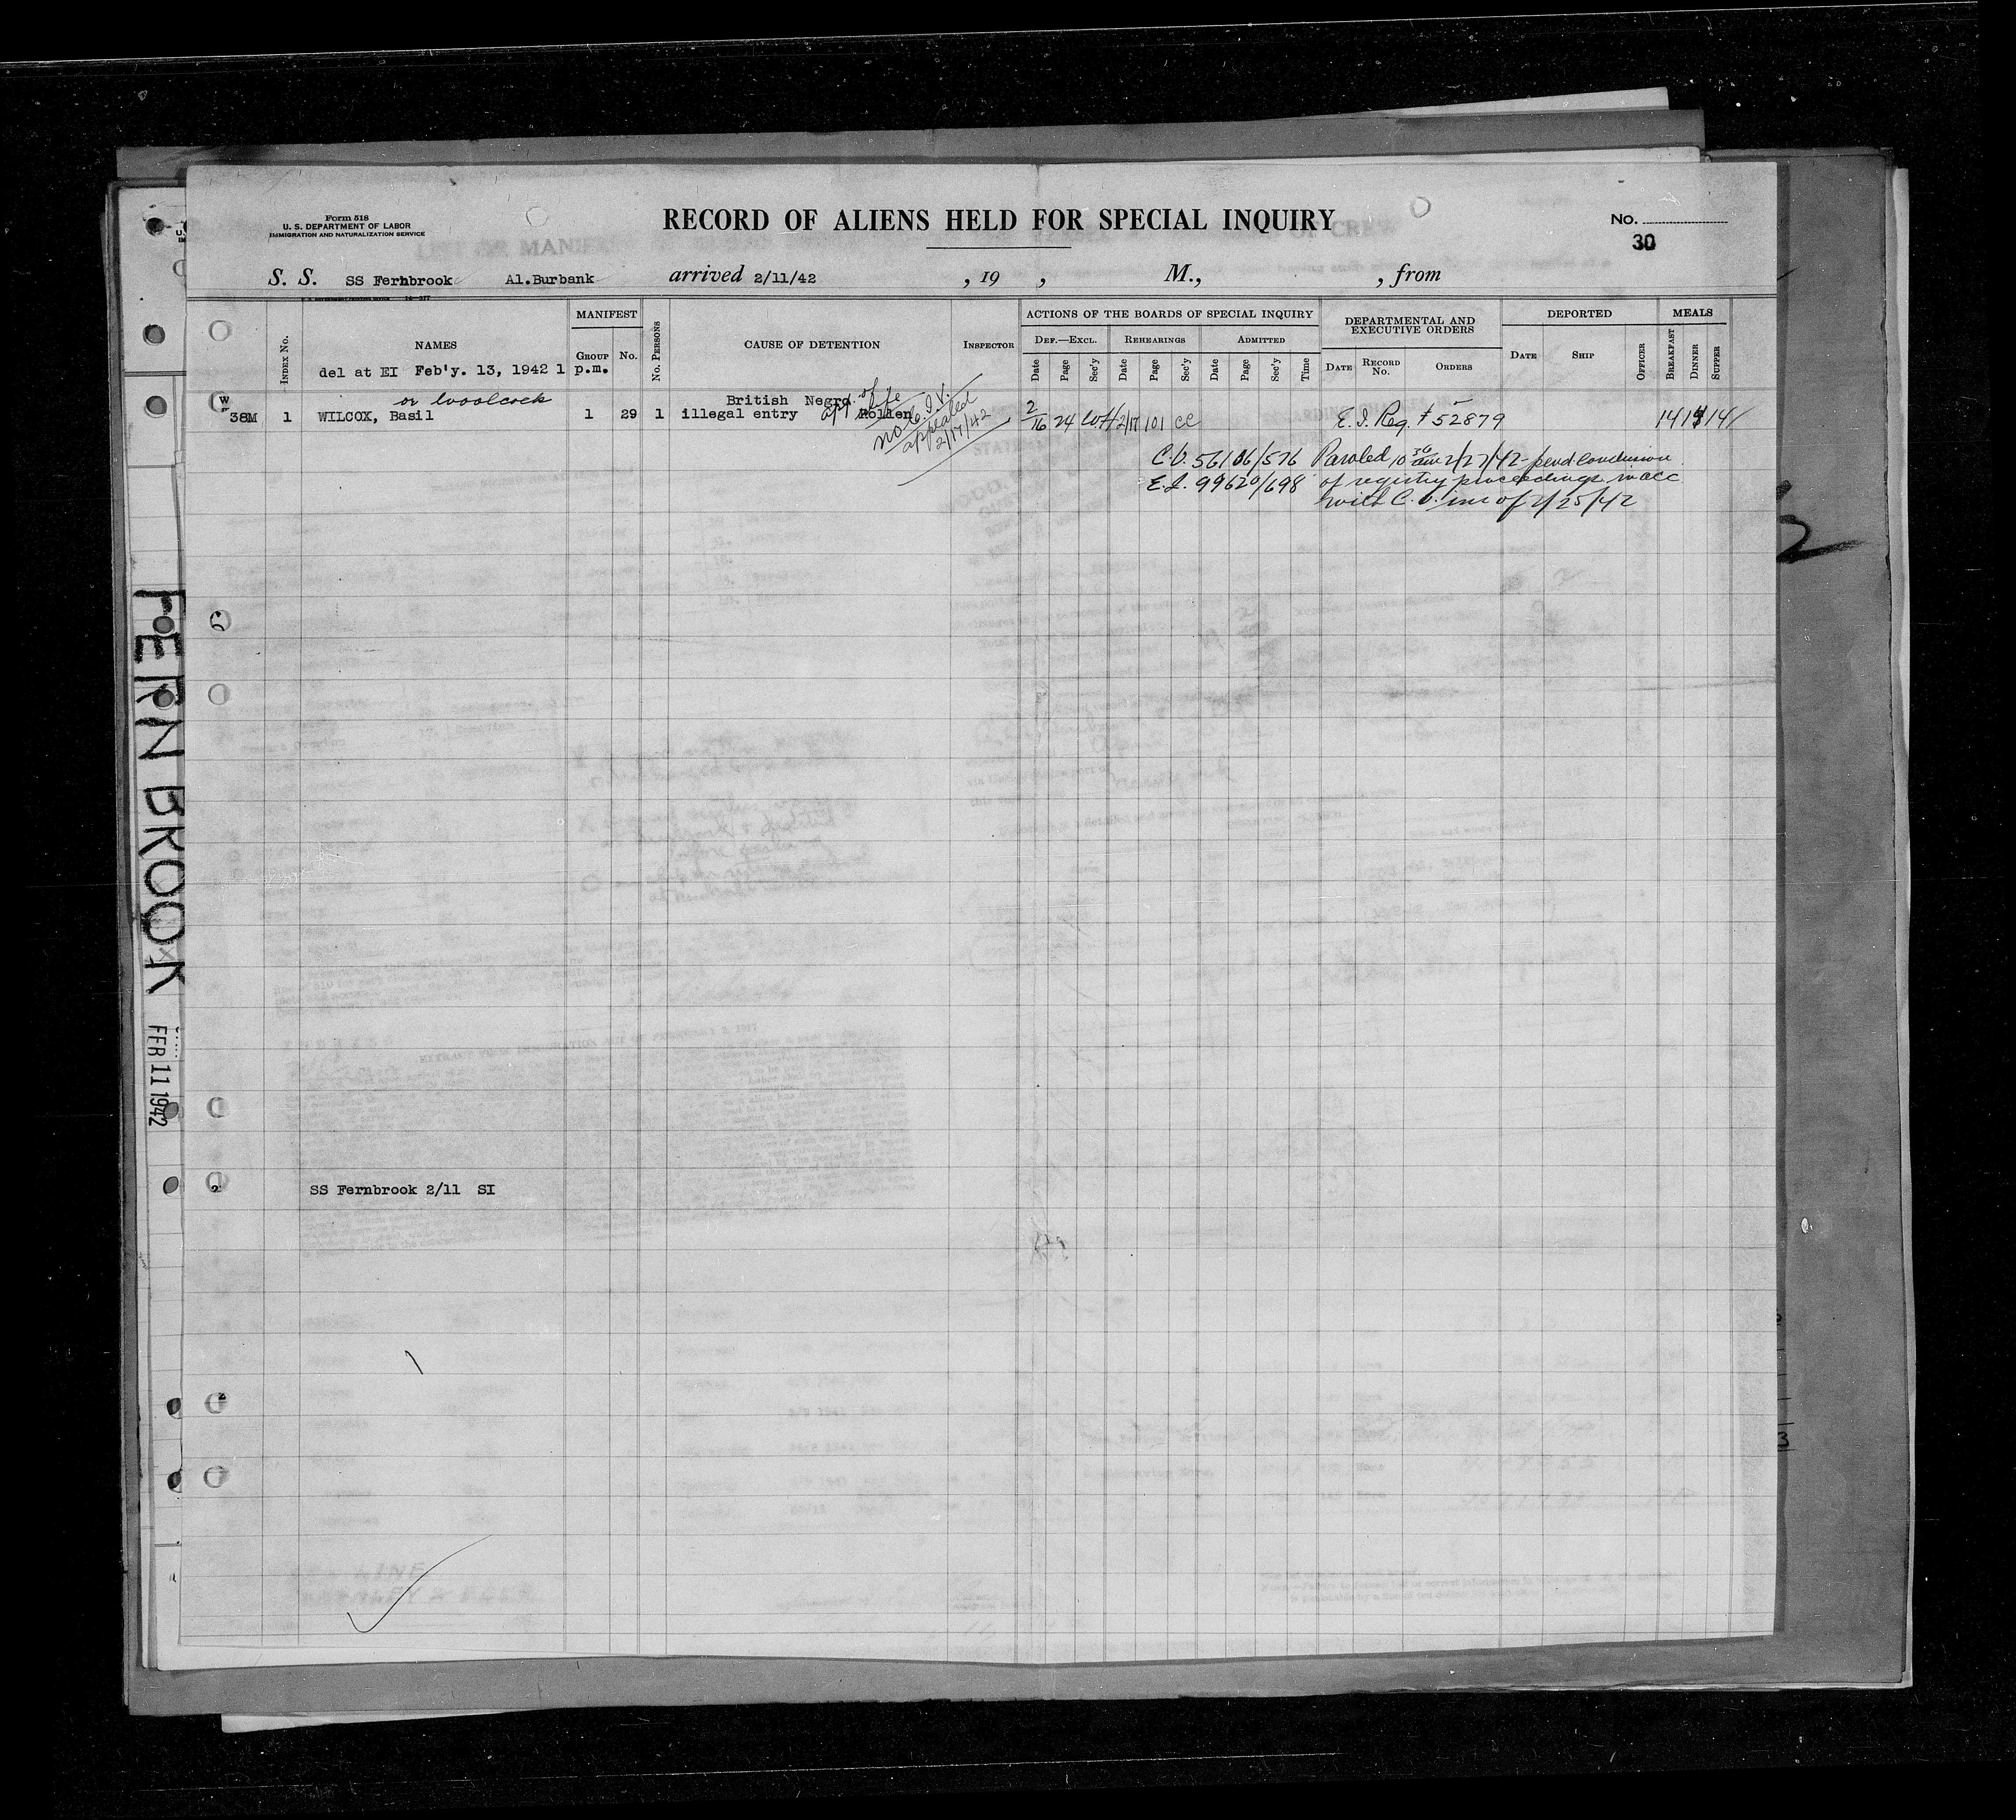 Form 518
U. S. DEPARTMENT OF LABOR
IMMIGRATION AND NATURALIZATION SERVICE
RECORD OF ALIENS HELD FOR SPECIAL INQUIRY
No.
30
S. S. SS Fernbrook Al.Burbank arrived 2/11/42 , 19 , M., , from
INDEX No.
NAMES
del at EI Feb'y. 13, 1942 1 p.m.
MANIFEST
GROUP
No.
No. PERSONS
CAUSE OF DETENTION
INSPECTOR
ACTIONS OF THE BOARDS OF SPECIAL INQUIRY
DEF.—EXCL.
REHEARINGS
ADMITTED
Date Page Sec'y Date Page Sec'y Date Page Sec'y Time
DEPARTMENTAL AND
EXECUTIVE ORDERS
DATE
RECORD
No.
ORDERS
DEPORTED
DATE
SHIP
OFFICER
MEALS
BREAKFAST
DINNER
SUPPER
or Woolcock
British Negro
38M 1 WILCOX, Basil 1 29 1 illegal entry Mollen
no C.I.V.
appealed
2/17/42
2/16 24 2/17 101 CC
E. I. Reg. # 52879
14 14 14
C.O. 56106/576 Paroled 10 30 am 2/27/42 - pend conclusion
E.I. 99620/698 of registry proceedings in acc
with C.O. ins of 2/25/42
FERNBROOK
FEB 11 1942
SS Fernbrook 2/11 SI